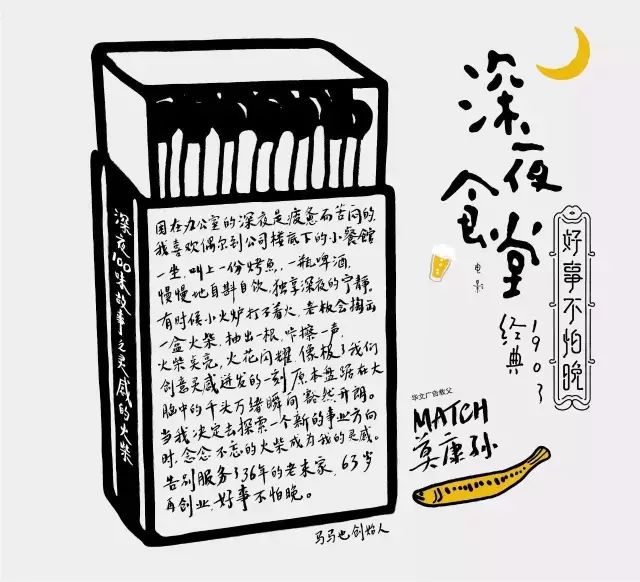 深夜食堂
电影
经典
1903
好事不怕晚
华文广告教父
MATCH
莫康孙
深夜100味故事之灵感的火柴
困在办公室的深夜是疲惫而苦闷的。
我喜欢偶尔到公司楼底下的小餐馆
一坐，叫上一份烤鱼，一瓶啤酒，
慢慢地自斟自饮，独享深夜的宁静。
有时候小火炉打不着火，老板会掏出
一盒火柴，抽出一根，咔擦一声，
火柴英亮，火花闪耀，像极了我们
创意灵感迸发的一刻，原本盘踞在大
脑中的千头万绪瞬间豁然开朗。
当我决定去探索一个新的事业方向
时，念念不忘的火柴成为我的灵感。
告别服务了36年的老东家，63岁
再创业，好事不怕晚。
马马也创始人